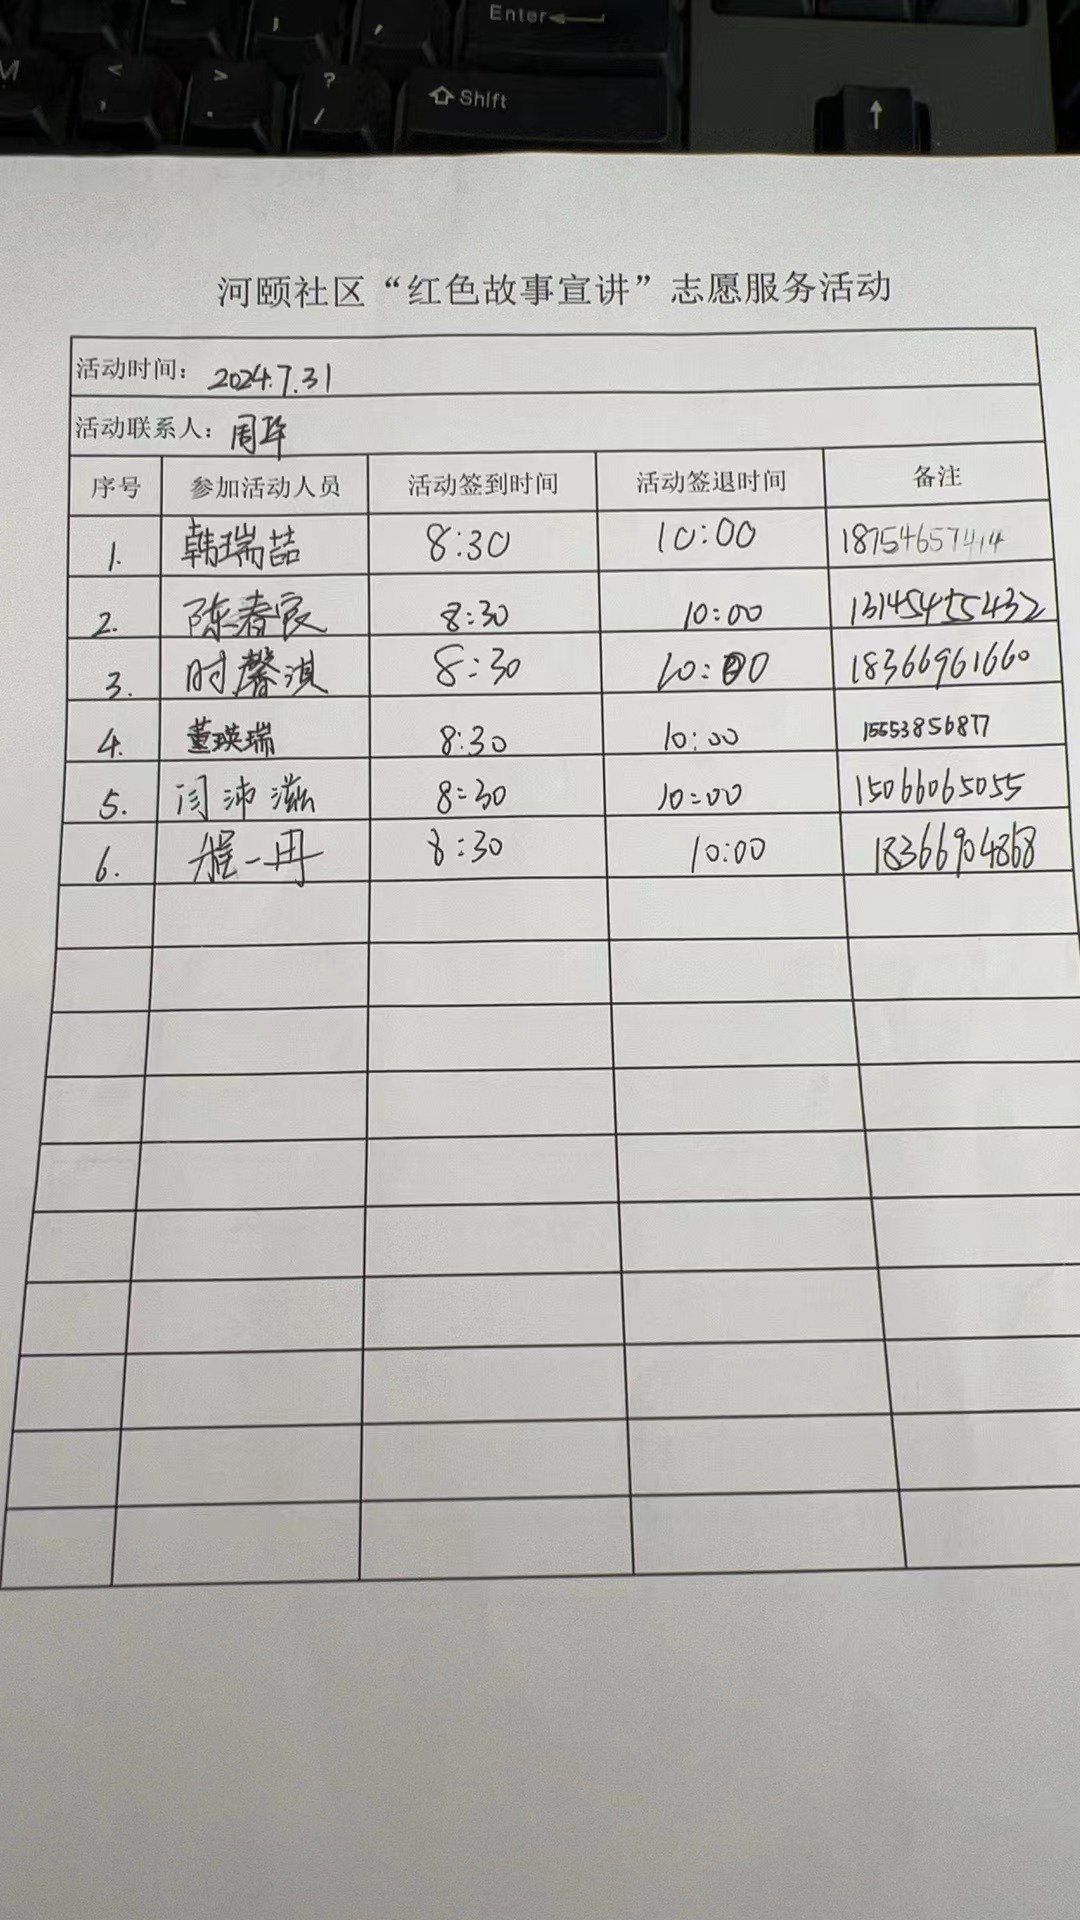 Enter
M < , > . ? / Shift ↑
河颐社区“红色故事宣讲”志愿服务活动
活动时间: 2024.7.31
活动联系人: 周华
序号 参加活动人员 活动签到时间 活动签退时间 备注
1. 韩瑞喆 8:30 10:00 18754657414
2. 陈春良 8:30 10:00 13145455432
3. 时馨淇 8:30 10:00 18366961660
4. 董瑛瑞 8:30 10:00 15553856877
5. 闫沛滋 8:30 10:00 15066065055
6. 程一冉 8:30 10:00 18366904868